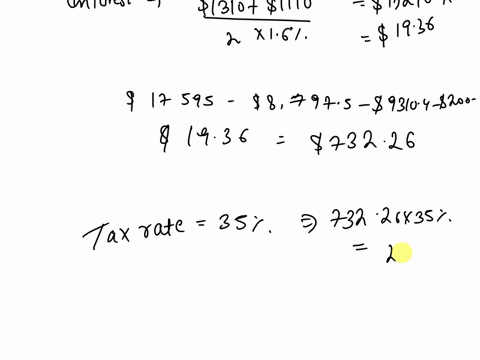 $1310+ $1110
2 × 1.6%
= $19.36
$ 17 595 - $8,797.5 - $9310.4 - $200-
$ 19.36 = $732.26
Tax rate = 35% ⇒ 732.26×35%.
= 2